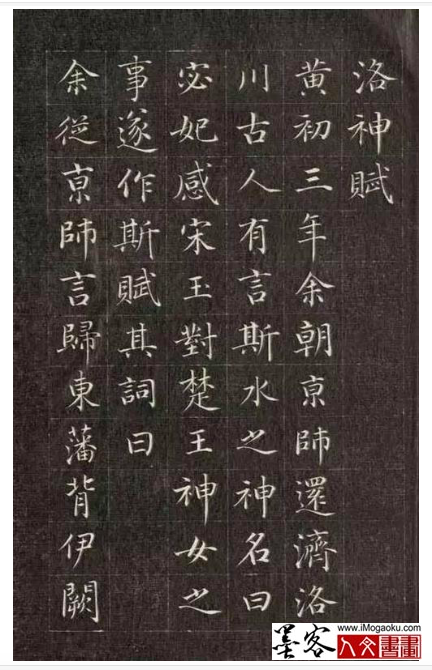 洛神賦
黄初三年余朝京師還濟洛
川古人有言斯水之神名曰
宓妃感宋玉對楚王神女之
事遂作斯賦其詞曰
余從京師言歸東藩背伊闕
墨客
人文書畫
www.iMogaoku.com